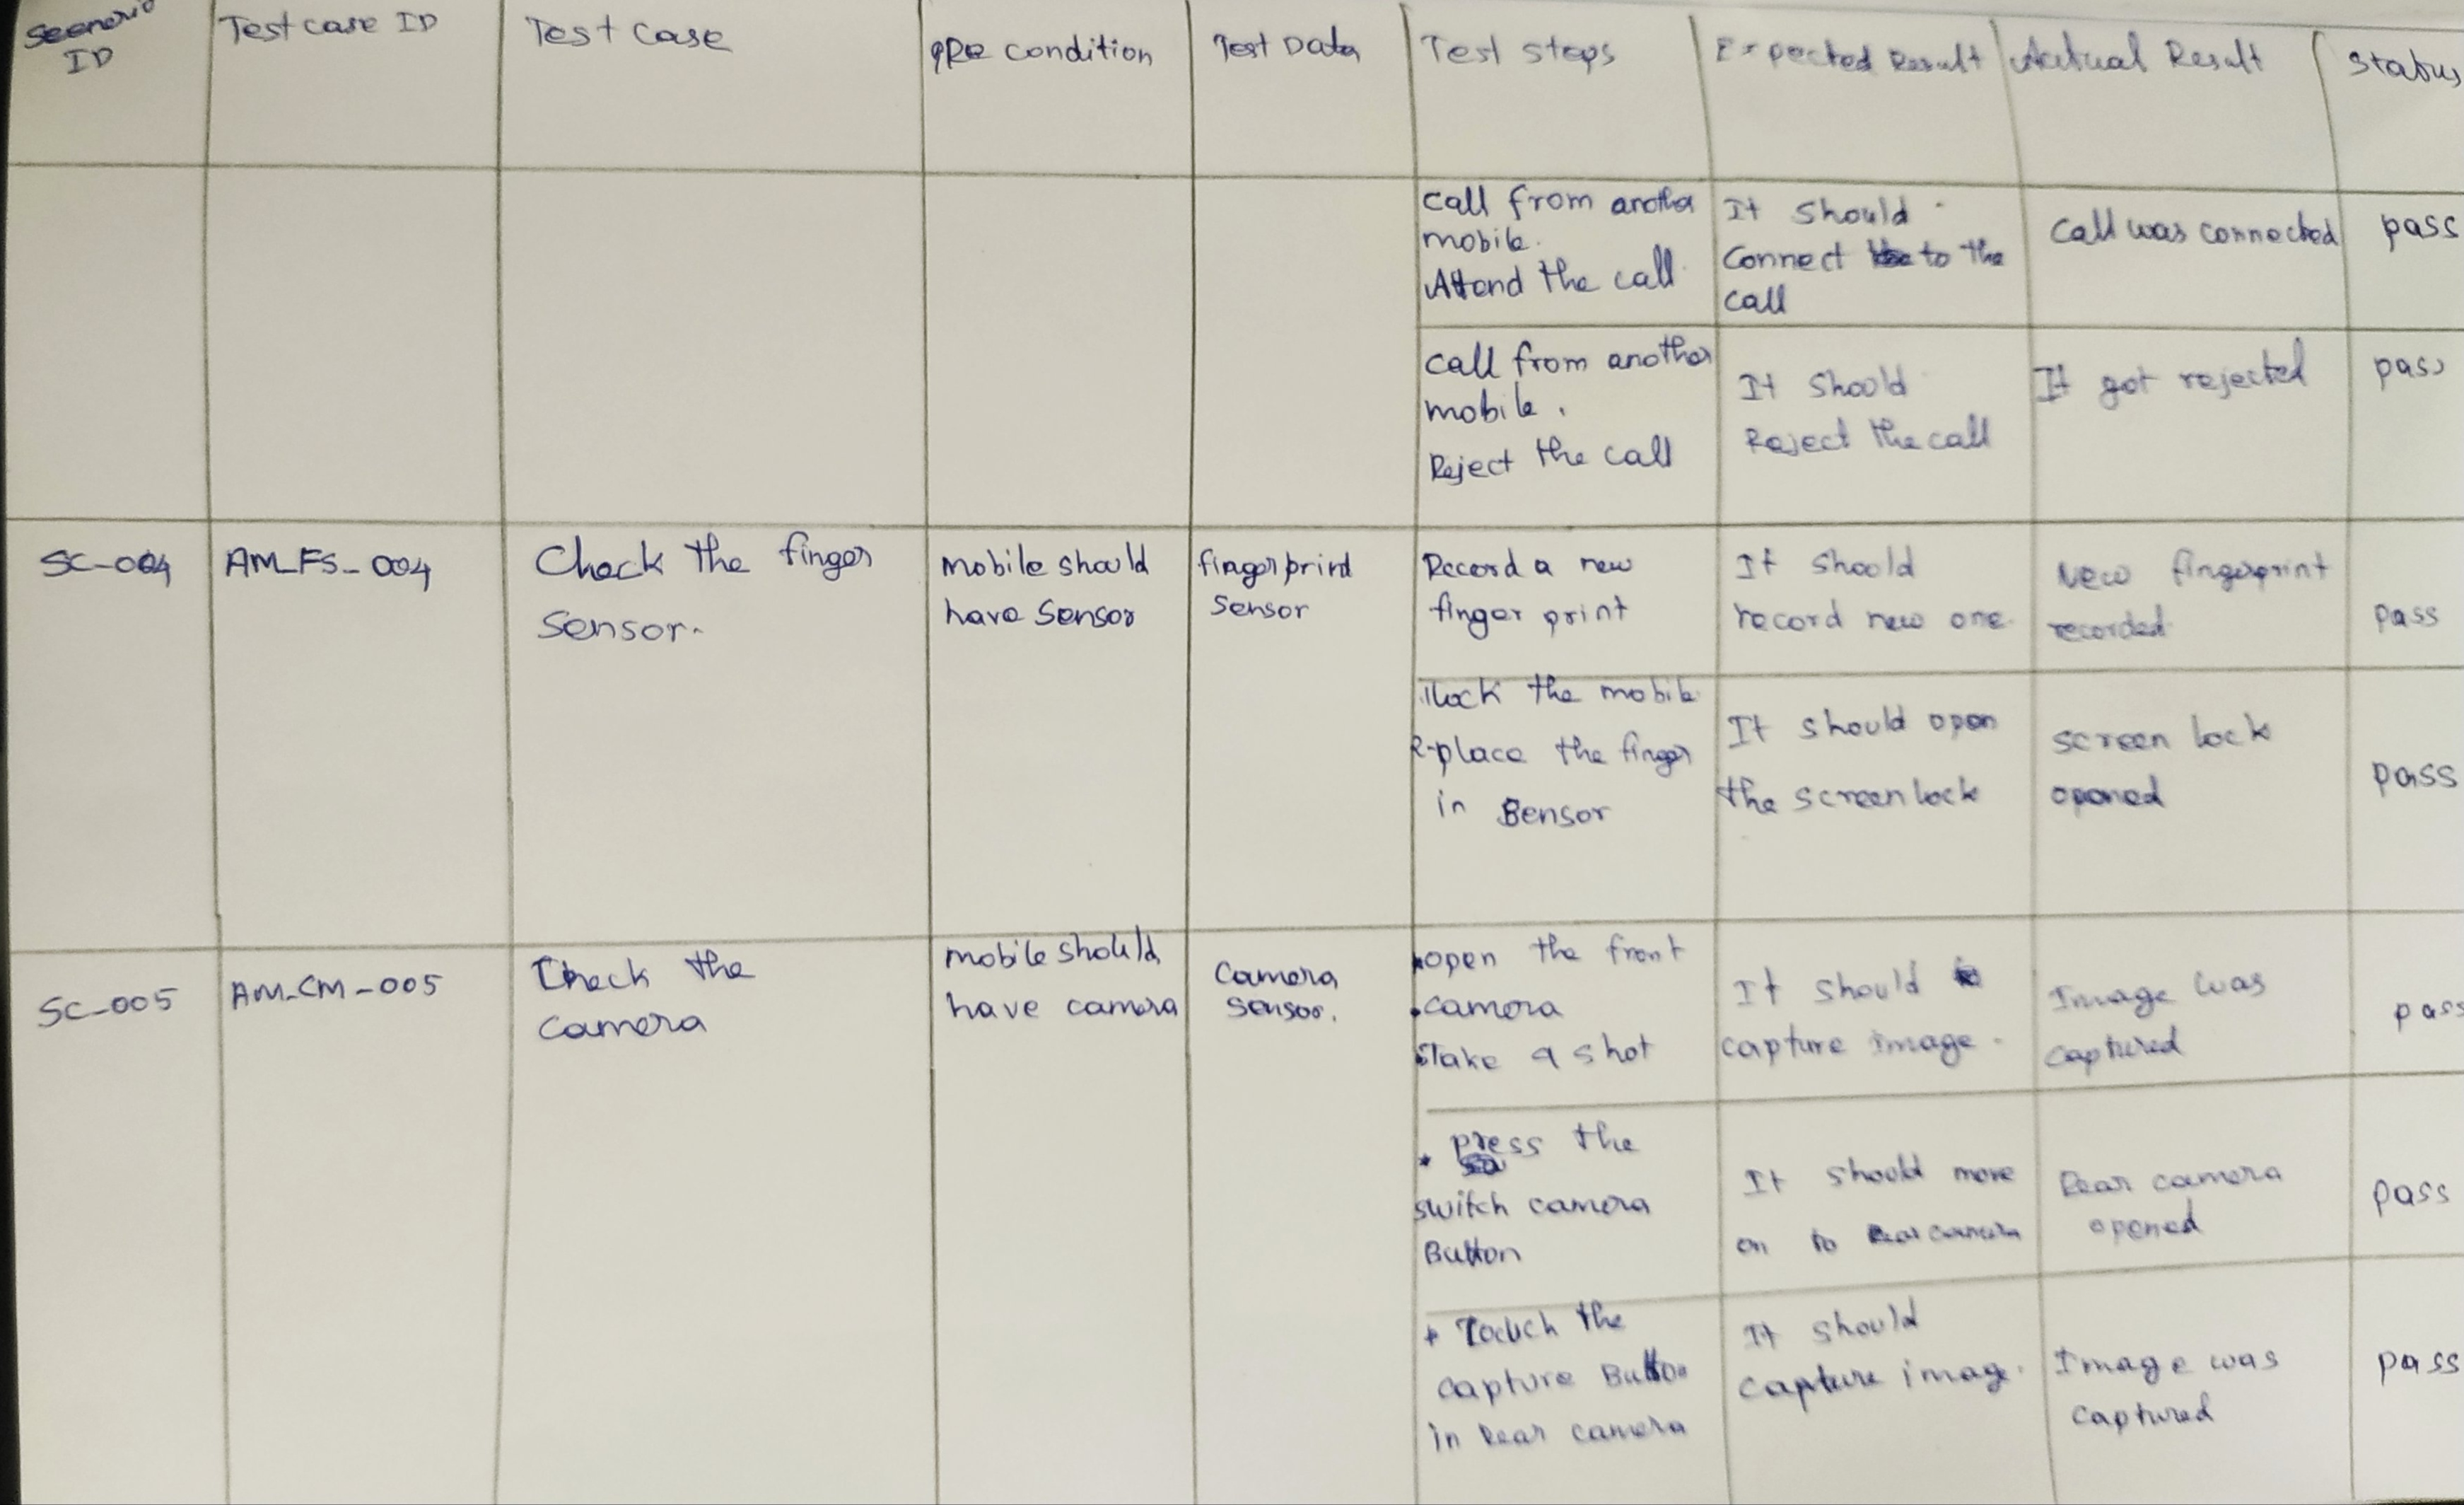 Scenario ID
Test case ID
Test case
PRe condition
Test Data
Test steps
Expected Result
Actual Result
Status
call from another
mobile.
Attend the call
It should
Connect to the
call
Call was connected
pass
call from another
mobile.
Reject the call
It should
Reject the call
It got rejected
pass
SC-004
AM_FS_004
Check the finger
Sensor.
mobile should
have Sensor
fingerprint
Sensor
Record a new
finger print
It should
record new one.
New fingerprint
recorded
pass
1lock the mobile
2-place the finger
in Sensor
It should open
the screen lock
screen lock
opened
pass
SC_005
AM_CM_005
Check the
camera
mobile should
have camera
Camera
Sensor.
open the front
camera
Take a shot
It should
capture image.
Image was
captured
pass
• press the
switch camera
Button
It should move
on to Rear camera
Rear camera
opened
pass
• Touch the
capture Button
in Rear camera
It should
capture image.
Image was
captured
pass